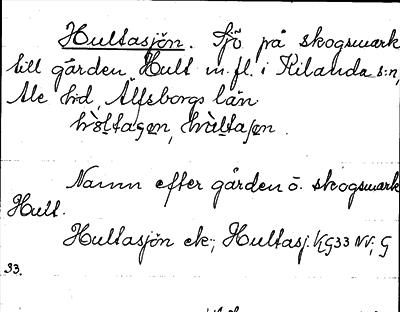 Hultasjön. Sjö på skogsmark
till gården Hult m.fl. i Kilanda s:n,
Ale hd, Älfsborgs län
Namn efter gården o. skogsmark
Hult.
Hultasjön ek; Hultasj. KG33 NV; G
33.